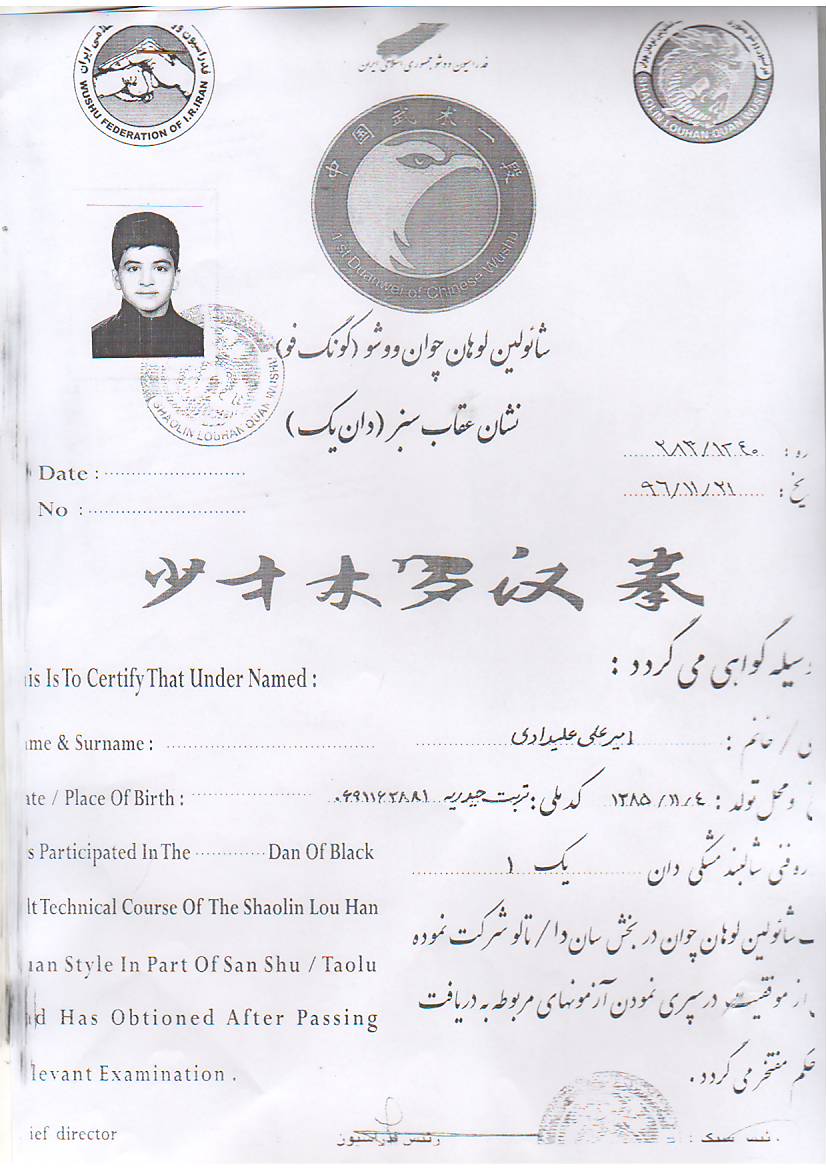 WUSHU FEDERATION OF I.R.IRAN
فدراسیون ووشو جمهوری اسلامی ایران
SHAOLIN LOUHAN QUAN WUSHU
中国武术一段
1 st Duanwei of Chinese Wushu
شائولین لوهان چوان ووشو (کونگ فو)
SHAOLIN LOUHAN QUAN WUSHU
نشان عقاب سبز (دان یک)
ره : ۲۸۳/۱۲۴۰
Date :
یخ : ۹۶/۱۱/۲۱
No :
少林罗汉拳
سیله گواهی می گردد :
is Is To Certify That Under Named :
/ خانم : امیر علی علیدادی
me & Surname :
و محل تولد : ۱۳۸۵/۱۱/۰۴ تربت حیدریه کد ملی : ۰۶۹۱۱۶۲۸۸۱
te / Place Of Birth :
ره فنی شالبند مشکی دان یک ۱
s Participated In The ............ Dan Of Black
شائولین لوهان چوان در بخش ساندا / تالو شرکت نموده
lt Technical Course Of The Shaolin Lou Han
از موفقیت در سپری نمودن آزمونهای مربوطه به دریافت
uan Style In Part Of San Shu / Taolu
حکم مفتخر می گردد .
d Has Obtioned After Passing
levant Examination .
ief director
رئیس فدراسیون
ئیس سبک :